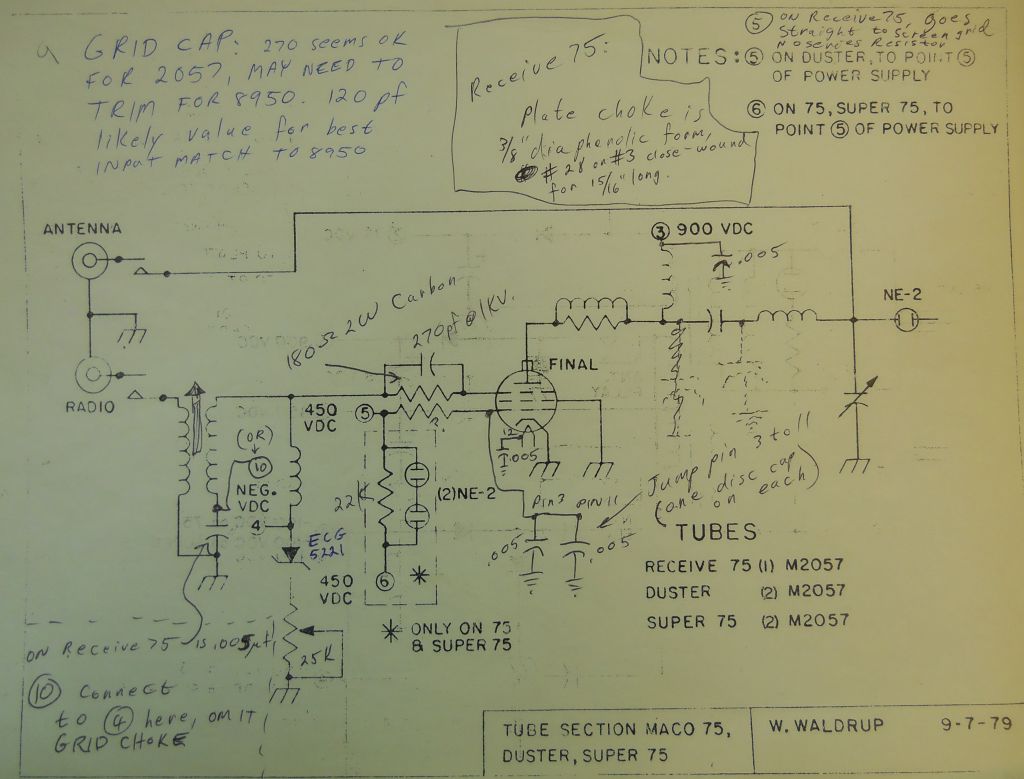 GRID CAP: 270 seems OK
FOR 2057, MAY NEED TO
TRIM FOR 8950. 120 pf
likely value for best
INPUT MATCH TO 8950
Receive 75:
Plate choke is
3/8" dia phenolic form,
# 28 on #3 close-wound
for 15/16" long.
⑤ ON Receive 75, Goes
Straight to Screen grid
No series Resistor
NOTES: ⑤ ON DUSTER, TO POINT ⑤
OF POWER SUPPLY
⑥ ON 75, SUPER 75, TO
POINT ⑤ OF POWER SUPPLY
ANTENNA
③ 900 VDC
.005
NE-2
180Ω 2W Carbon
270pf @ 1KV.
FINAL
RADIO
450
VDC
⑤
?
12
.005
(OR)
⑩
NEG.
VDC
4
22K
(2) NE-2
Pin 3
Pin 11
Jump pin 3 to 11
(one disc cap
on each)
ECG
5221
.005
.005
450
VDC
⑥
*
TUBES
RECEIVE 75 (1) M2057
DUSTER (2) M2057
SUPER 75 (2) M2057
* ONLY ON 75
& SUPER 75
25K
ON Receive 75 is .005µf
⑩ Connect
to ④ here, OMIT
GRID CHOKE
TUBE SECTION MACO 75,
DUSTER, SUPER 75
W. WALDRUP 9-7-79